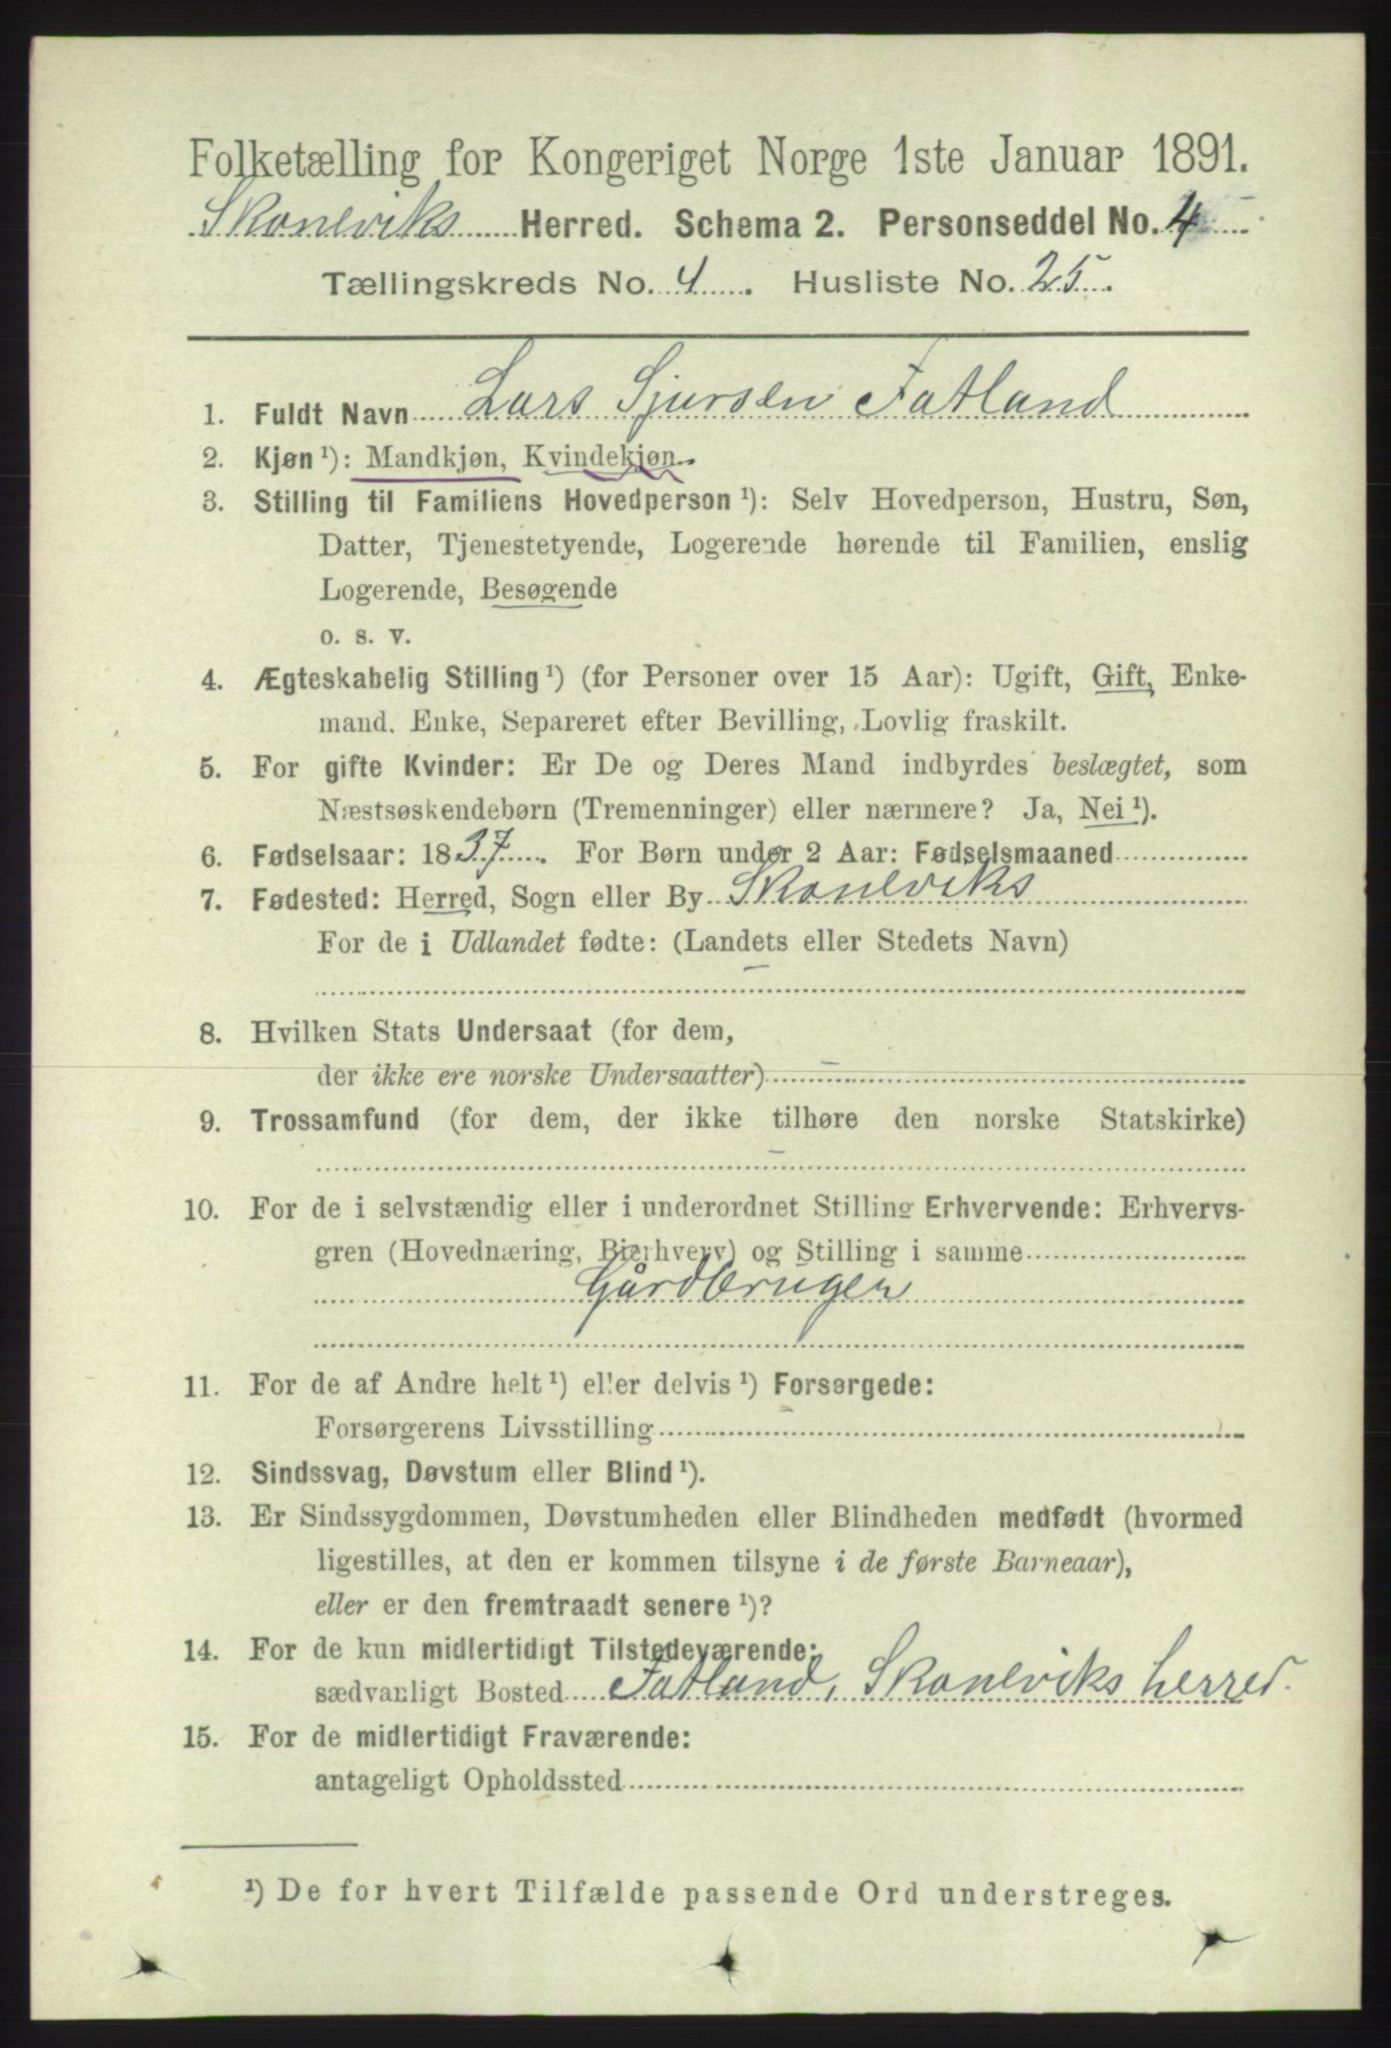 Folketælling for Kongeriget Norge 1ste Januar 1891.
Skoneviks Herred. Schema 2. Personseddel No. 4
Tællingskreds No. 4. Husliste No. 25.
1. Fuldt Navn Lars Sjursen Fatland
2. Kjøn ¹): Mandkjøn, Kvindekjøn.
3. Stilling til Familiens Hovedperson ¹): Selv Hovedperson, Hustru, Søn,
Datter, Tjenestetyende, Logerende hørende til Familien, enslig
Logerende, Besøgende
o. s. v.
4. Ægteskabelig Stilling ¹) (for Personer over 15 Aar): Ugift, Gift, Enke-
mand. Enke, Separeret efter Bevilling, Lovlig fraskilt.
5. For gifte Kvinder: Er De og Deres Mand indbyrdes beslægtet, som
Næstsøskendebørn (Tremenninger) eller nærmere? Ja, Nei ¹).
6. Fødselsaar: 1837. For Børn under 2 Aar: Fødselsmaaned
7. Fødested: Herred, Sogn eller By Skoneviks
For de i Udlandet fødte: (Landets eller Stedets Navn)
8. Hvilken Stats Undersaat (for dem,
der ikke ere norske Undersaatter)
9. Trossamfund (for dem, der ikke tilhøre den norske Statskirke)
10. For de i selvstændig eller i underordnet Stilling Erhvervende: Erhvervs-
gren (Hovednæring, Bierhverv) og Stilling i samme
Gårdbruger
11. For de af Andre helt ¹) eller delvis ¹) Forsørgede:
Forsørgerens Livsstilling
12. Sindssvag, Døvstum eller Blind ¹).
13. Er Sindssygdommen, Døvstumheden eller Blindheden medfødt (hvormed
ligestilles, at den er kommen tilsyne i de første Barneaar),
eller er den fremtraadt senere ¹)?
14. For de kun midlertidigt Tilstedeværende:
sædvanligt Bosted Fatland, Skoneviks herred.
15. For de midlertidigt Fraværende:
antageligt Opholdssted
¹) De for hvert Tilfælde passende Ord understreges.